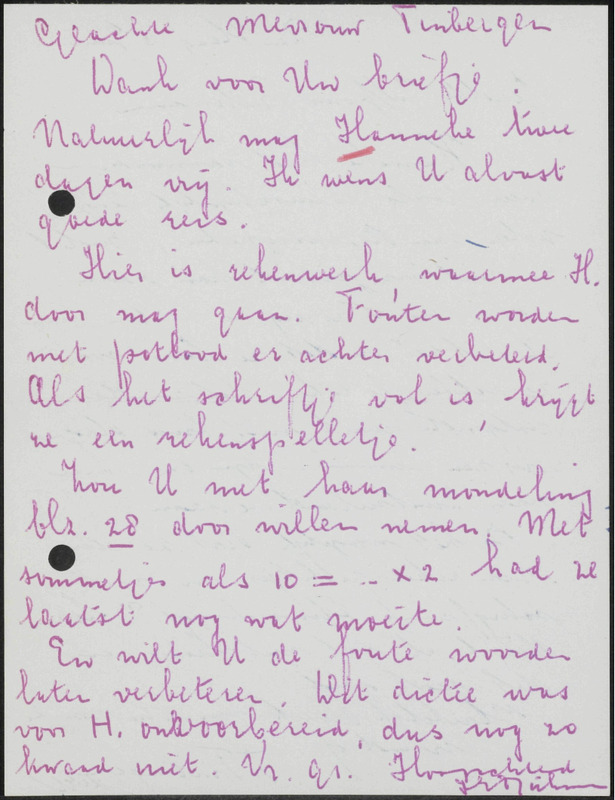 Geachte Mevrouw Tinbergen
Dank voor Uw briefje.
Natuurlijk mag Hanneke twee
dagen vrij. Ik wens U alvast
goede reis.
Hier is rekenwerk, waarmee H.
door mag gaan. Fouten worden
met potlood er achter verbeterd.
Als het schriftje vol is, krijgt
ze een rekenspelletje.
Zou U met haar mondeling
blz. 28 door willen nemen. Met
sommetjes als 10 = .. x 2 had ze
laatst nog wat moeite.
En wilt U de foute woorden
laten verbeteren. Dit dictée was
voor H. onvoorbereid, dus nog zo
kwaad niet. Vr. gr. Hoogachtend